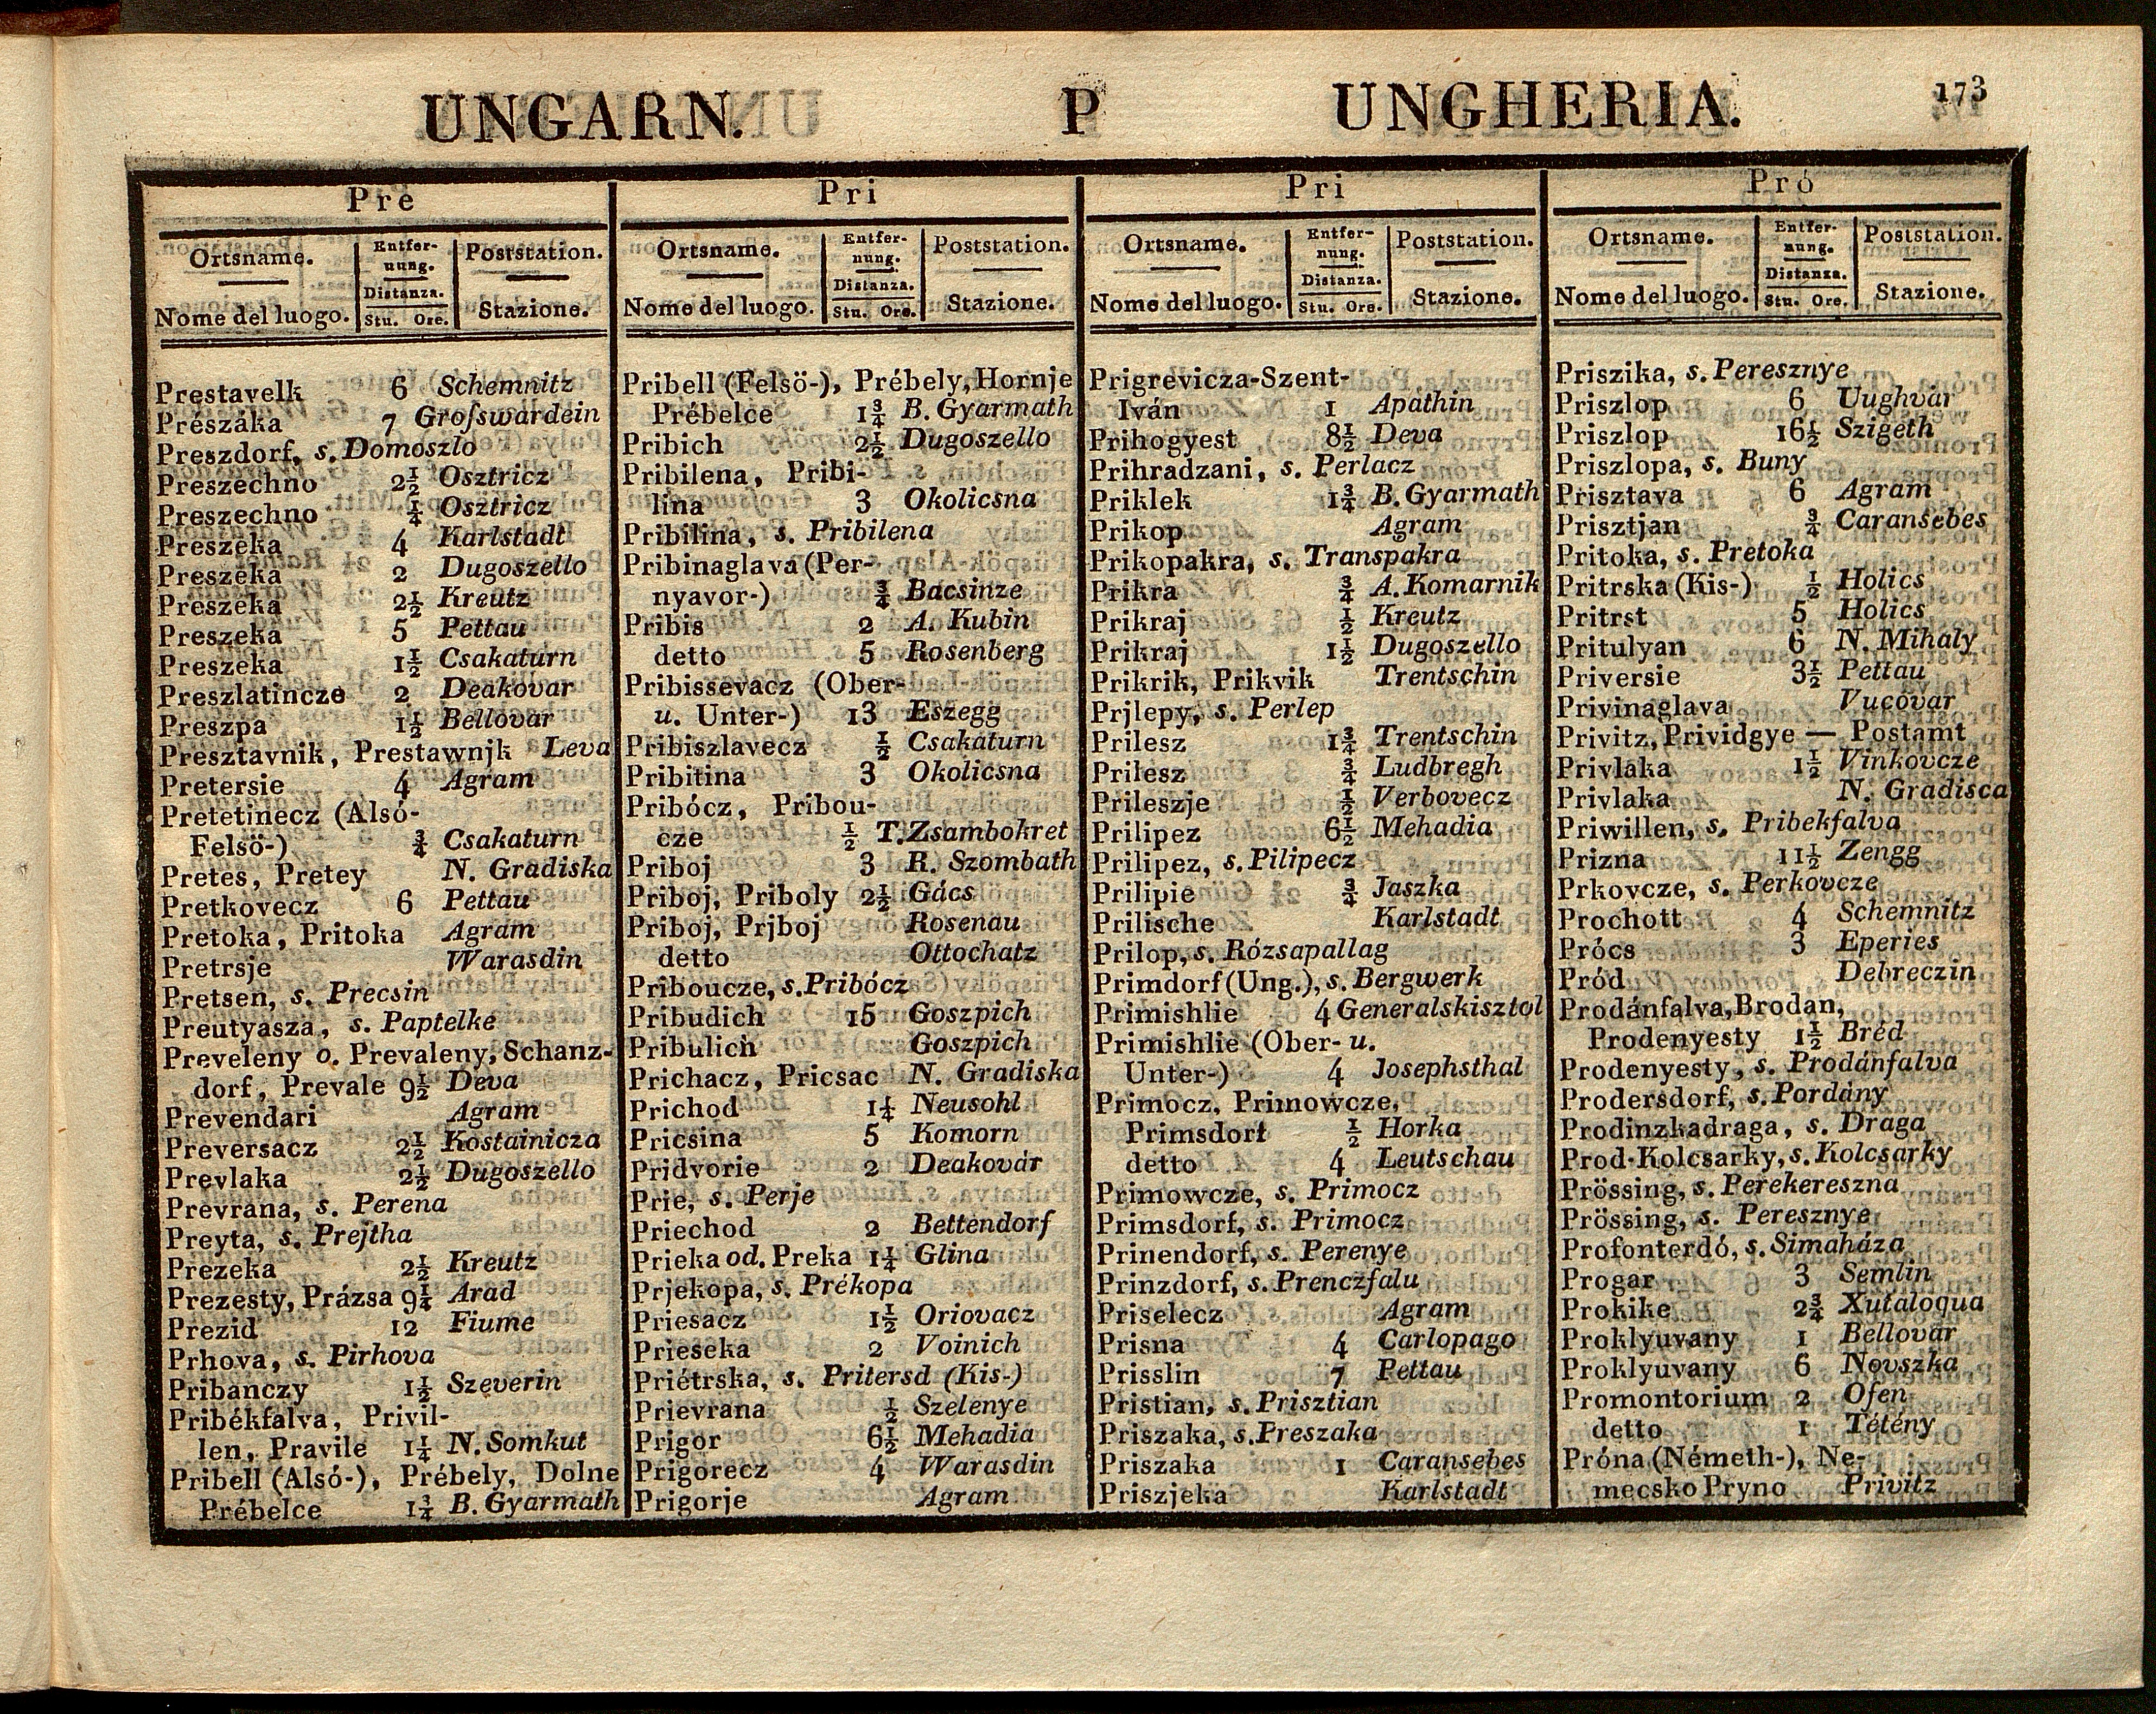 UNGARN. P UNGHERIA. 173
Pre
Ortsname.
Nome del luogo.
Entfer-
nung.
Distanza.
Stu. Ore.
Poststation.
Stazione.
Prestavelk 6 Schemnitz
Prészáka 7 Groſswardein
Preszdorf, s. Domoszlo
Preszechno 2½ Osztricz
Preszechno ¼ Osztricz
Preszeka 4 Karlstadt
Preszeka 2 Dugoszello
Preszeka 2½ Kreutz
Preszeka 5 Pettau
Preszeka 1½ Csakaturn
Preszlatincze 2 Deakovar
Preszpa 1½ Bellovar
Presztavnik, Prestawnjk Leva
Pretersie 4 Agram
Pretetinecz (Alsó-
Felsö-) ¾ Csakaturn
Pretes, Pretey N. Gradiska
Pretkovecz 6 Pettau
Pretoka, Pritoka Agram
Pretrsje Warasdin
Pretsen, s. Precsin
Preutyasza, s. Paptelke
Preveleny o. Prevaleny, Schanz-
dorf, Prevale 9½ Deva
Prevendari Agram
Preversacz 2½ Kostainicza
Prevlaka 2½ Dugoszello
Prevrana, s. Perena
Preyta, s. Prejtha
Prezeka 2½ Kreutz
Prezesty, Prázsa 9¼ Arad
Prezid 12 Fiume
Prhova, s. Pirhova
Pribanczy 1½ Szeverin
Pribékfalva, Privil-
len, Pravile 1¼ N. Somkut
Pribell (Alsó-), Prébely, Dolne
Prébelce 1¾ B. Gyarmath
Pri
Ortsname.
Nome del luogo.
Entfer-
nung.
Distanza.
Stu. Ore.
Poststation.
Stazione.
Pribell (Felsö-), Prébely, Hornje
Prébelce 1¾ B. Gyarmath
Pribich 2½ Dugoszello
Pribilena, Pribi-
lina 3 Okolicsna
Pribilina, s. Pribilena
Pribinaglava (Per-
nyavor-) ¾ Bacsinze
Pribis 2 A. Kubin
detto 5 Rosenberg
Pribissevacz (Ober-
u. Unter-) 13 Eszegg
Pribiszlavecz ½ Csakaturn
Pribitina 3 Okolicsna
Pribócz, Pribou-
cze ½ T. Zsambokret
Priboj 3 R. Szombath
Priboj, Priboly 2½ Gács
Priboj, Prjboj Rosenau
detto Ottochatz
Priboucze, s. Pribócz
Pribudich 15 Goszpich
Pribulich Goszpich
Prichacz, Pricsac N. Gradiska
Prichod 1¼ Neusohl
Pricsina 5 Komorn
Pridvorie 2 Deakovár
Prie, s. Perje
Priechod 2 Bettendorf
Prieka od. Preka 1¼ Glina
Prjekopa, s. Prékopa
Priesacz 1½ Oriovacz
Prieseka 2 Voinich
Priétrska, s. Pritersd (Kis-)
Prievrana ½ Szelenye
Prigor 6½ Mehadia
Prigorecz 4 Warasdin
Prigorje Agram
Pri
Ortsname.
Nome del luogo.
Entfer-
nung.
Distanza.
Stu. Ore.
Poststation.
Stazione.
Prigrevicza-Szent-
Iván 1 Apathin
Prihogyest 8½ Deva
Prihradzani, s. Perlacz
Priklek 1¾ B. Gyarmath
Prikop Agram
Prikopakra, s. Transpakra
Prikra ¾ A. Komarnik
Prikraj ½ Kreutz
Prikraj 1½ Dugoszello
Prikrik, Prikvik Trentschin
Prjlepy, s. Perlep
Prilesz 1¾ Trentschin
Prilesz ¾ Ludbregh
Prileszje ½ Verbovecz
Prilipez 6½ Mehadia
Prilipez, s. Pilipecz
Prilipie ¾ Jaszka
Prilische Karlstadt
Prilop, s. Rózsapallag
Primdorf (Ung.), s. Bergwerk
Primishlie 4 Generalskisztol
Primishlie (Ober- u.
Unter-) 4 Josephsthal
Primocz, Primowcze,
Primsdorf ½ Horka
detto 4 Leutschau
Primowcze, s. Primocz
Primsdorf, s. Primocz
Prinendorf, s. Perenye
Prinzdorf, s. Prenczfalu
Priselecz Agram
Prisna 4 Carlopago
Prisslin 7 Pettau
Pristian, s. Prisztian
Priszaka, s. Preszaka
Priszaka 1 Caransebes
Priszjeka Karlstadt
Pró
Ortsname.
Nome del luogo.
Entfer-
nung.
Distanza.
Stu. Ore.
Poststation.
Stazione.
Priszika, s. Peresznye
Priszlop 6 Uughvár
Priszlop 16½ Szigeth
Priszlopa, s. Buny
Prisztava 6 Agram
Prisztjan ¾ Caransebes
Pritoka, s. Pretoka
Pritrska (Kis-) ½ Holics
Pritrst 5 Holics
Pritulyan 6 N. Mihaly
Priversie 3½ Pettau
Privinaglava Vucovar
Privitz, Prividgye — Postamt
Privlaka 1½ Vinkovcze
Privlaka N. Gradisca
Priwillen, s. Pribekfalva
Prizna 11½ Zengg
Prkovcze, s. Perkovcze
Prochott 4 Schemnitz
Prócs 3 Eperies
Pród Debreczin
Prodánfalva, Brodan,
Prodenyesty 1½ Bréd
Prodenyesty, s. Prodánfalva
Prodersdorf, s. Pordány
Prodinzkadraga, s. Draga
Prod-Kolcsarky, s. Kolcsarky
Prössing, s. Perekereszna
Prössing, s. Peresznye
Profonterdó, s. Simaháza
Progar 3 Semlin
Prokike 2¾ Xutaloqua
Proklyuvany 1 Bellovár
Proklyuvany 6 Novszka
Promontorium 2 Ofen
detto 1 Tétény
Próna (Németh-), Ne-
mecsko Pryno Privitz